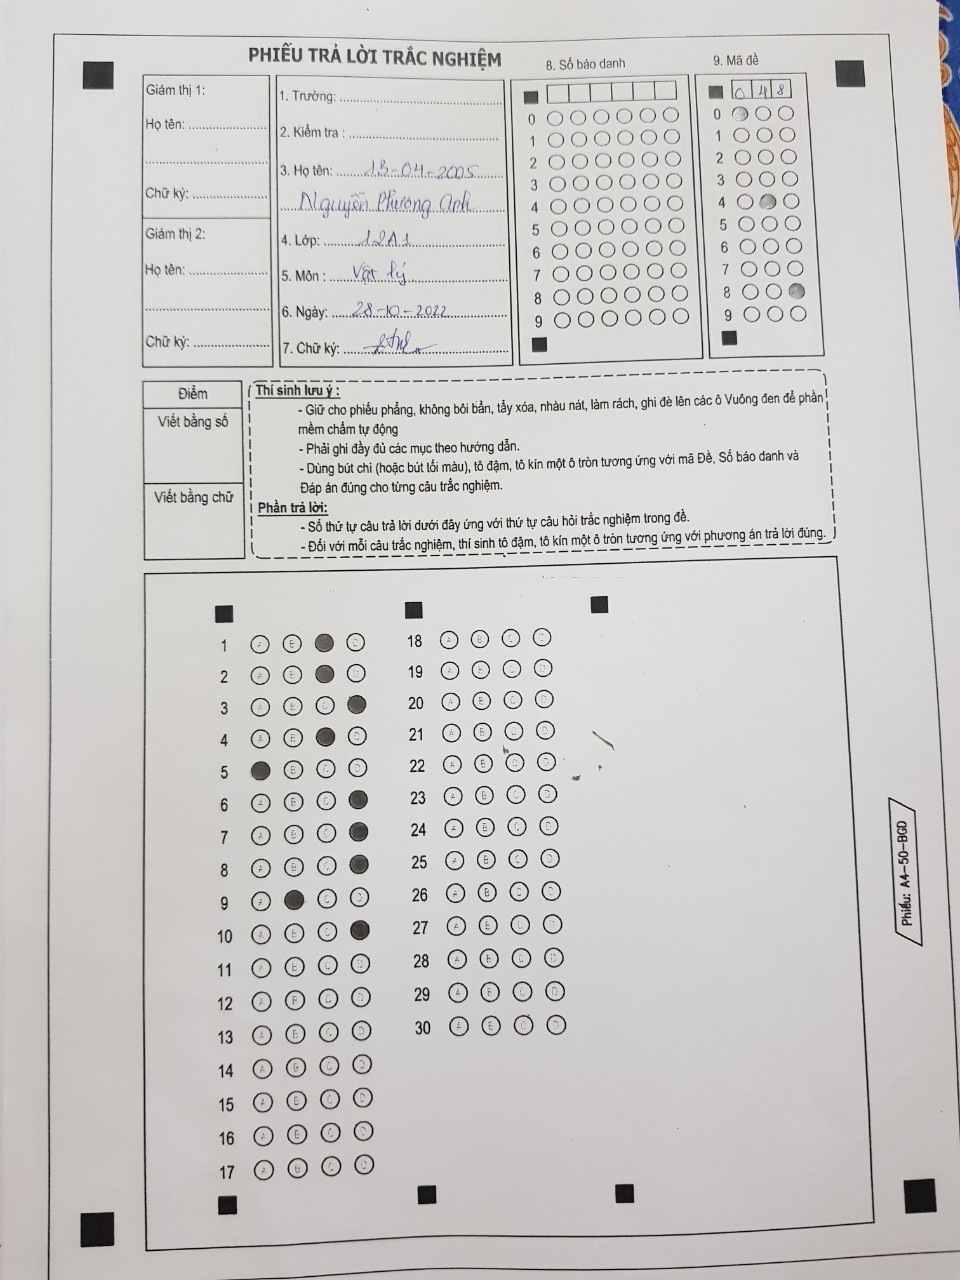 PHIẾU TRẢ LỜI TRẮC NGHIỆM
Giám thị 1:
Họ tên:
Chữ ký:
Giám thị 2:
Họ tên:
Chữ ký:
1. Trường:
2. Kiểm tra :
3. Họ tên: 13-04-2005
Nguyễn Phương Anh
4. Lớp: 12A1
5. Môn : Vật lý
6. Ngày: 28-10-2022
7. Chữ ký:
8. Số báo danh
0
1
2
3
4
5
6
7
8
9
9. Mã đề
0 4 8
0
1
2
3
4
5
6
7
8
9
Điểm
Viết bằng số
Viết bằng chữ
Thí sinh lưu ý :
- Giữ cho phiếu phẳng, không bôi bẩn, tẩy xóa, nhàu nát, làm rách, ghi đè lên các ô Vuông đen để phần
mềm chấm tự động
- Phải ghi đầy đủ các mục theo hướng dẫn.
- Dùng bút chì (hoặc bút tối màu), tô đậm, tô kín một ô tròn tương ứng với mã Đề, Số báo danh và
Đáp án đúng cho từng câu trắc nghiệm.
Phần trả lời:
- Số thứ tự câu trả lời dưới đây ứng với thứ tự câu hỏi trắc nghiệm trong đề.
- Đối với mỗi câu trắc nghiệm, thí sinh tô đậm, tô kín một ô tròn tương ứng với phương án trả lời đúng.
1 A B D
2 A B D
3 A B C
4 A B D
5 B C D
6 A B C
7 A B C
8 A B C
9 A C D
10 A B C
11 A B C D
12 A B C D
13 A B C D
14 A B C D
15 A B C D
16 A B C D
17 A B C D
18 A B C D
19 A B C D
20 A B C D
21 A B C D
22 A B C D
23 A B C D
24 A B C D
25 A B C D
26 A B C D
27 A B C D
28 A B C D
29 A B C D
30 A B C D
Phiếu: A4-50-BGD